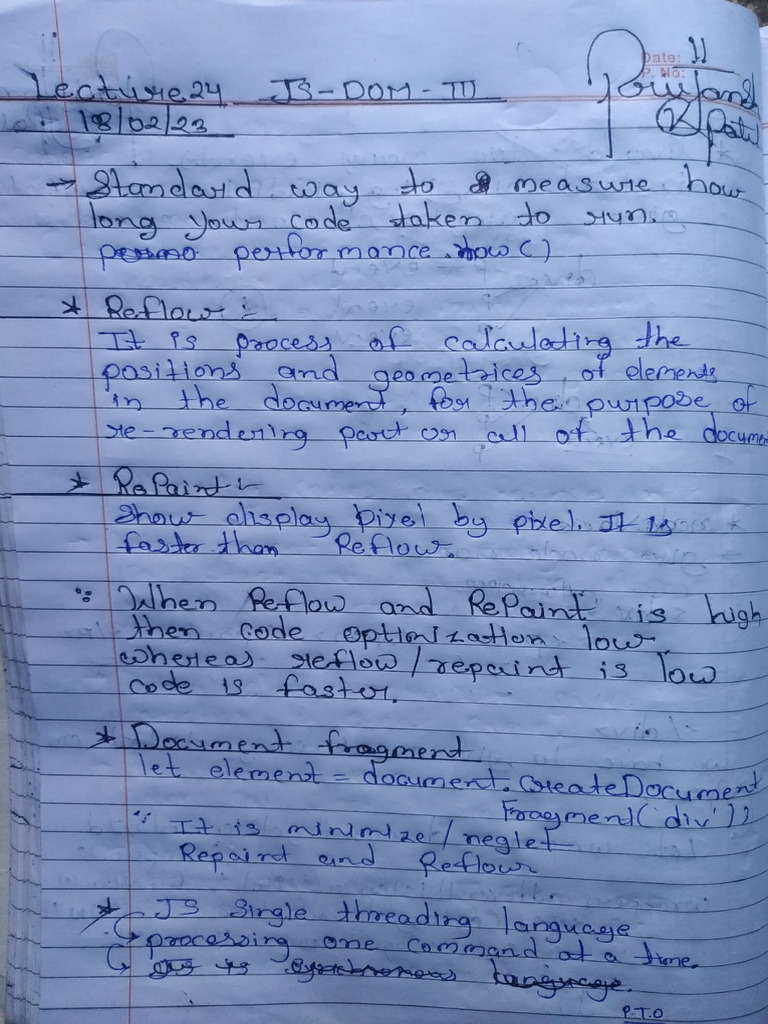 Date: 11
P. No:
Lecture 24 JS-DOM-III
18/02/23
→ Standard way to measure how
long your code taken to run.
performance.now()
* Reflow :-
It is process of calculating the
positions and geometrices of elements
in the document, for the purpose of
re-rendering part or all of the docume
* RePaint :-
Show display pixel by pixel. It is
faster than Reflow.
∵ When Reflow and RePaint is high
then code optimization low
whereas reflow/repaint is low
code is faster.
* Document fragment
let element = document.createDocument
Fragment('div');
∵ It is minimize/neglet
Repaint and Reflow
* JS Single threading language
↳ processing one command at a time.
P.T.O